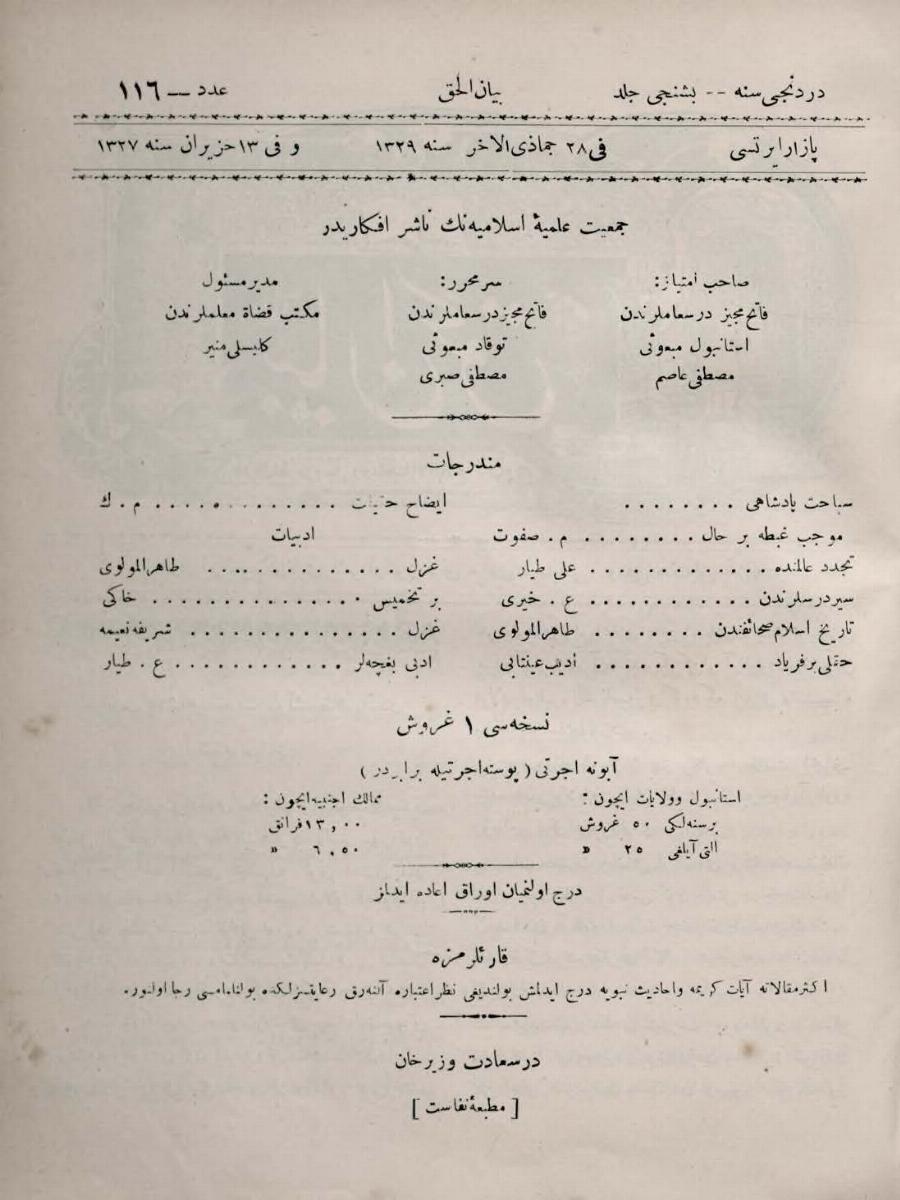 دردنجی سنه -- بشنجی جلد بیان‌الحق عدد — ١١٦
پازار ایرتسی فی ٢٨ جماذی‌الآخر سنه ١٣٢٩ و فی ١٣ حزیران سنه ١٣٢٧
جمعیت علمیهٔ اسلامیه‌نك ناشر افكاریدر
صاحب امتیاز: سرمحرر: مدیر مسئول
فاتح مجیز درسعاملرندن فاتح مجیز درسعاملرندن مكتب قضاة معلملرندن
استانبول مبعوثی توقاد مبعوثی كلیسلی منیر
مصطفی عاصم مصطفی صبری
مندرجات
سیاحت پادشاهی . . . . . . . . ایضاح حقیقت . . . . . . . . . . . . م . ك
موجب غبطه بر حال . . . . . . . . م . صفوت ادبیات
تجدد عالمنده . . . . . . . . . . . . . علی طیار غزل . . . . . . . . . . . . . طاهرالمولوی
سیر درسلرندن . . . . . . . . . . . . ع . خیری بر تخمیس . . . . . . . . . . . . خاكی
تاریخ اسلام صحائفندن . . . . . . . . طاهرالمولوی غزل . . . . . . . . . . . . . شریفه نعیمه
حقلی بر فریاد . . . . . . . . . . . . ادیب عینتابی ادبی بغچه‌لر . . . . . . . . . . . ع . طیار
نسخه‌سی ١ غروش
آبونه اجرتی ( پوسته اجرتیله برابردر )
استانبول وولایات ایچون : ممالك اجنبیه ایچون :
برسنه‌لكی ٥٠ غروش ١٣,٠٠ فرانق
التی آیلغی ٢٥ » ٦,٥٠ »
درج اولنمیان اوراق اعاده ایدلز
قارئلرمزه
اكثر مقالاته آیات كریمه واحادیث نبویه درج ایدلمش بولندیغی نظر اعتباره آلنه‌رق رعایتسزلكده بولنلمامسی رجا اولنور.
درسعادت وزیرخان
[ مطبعهٔ نفاست ]